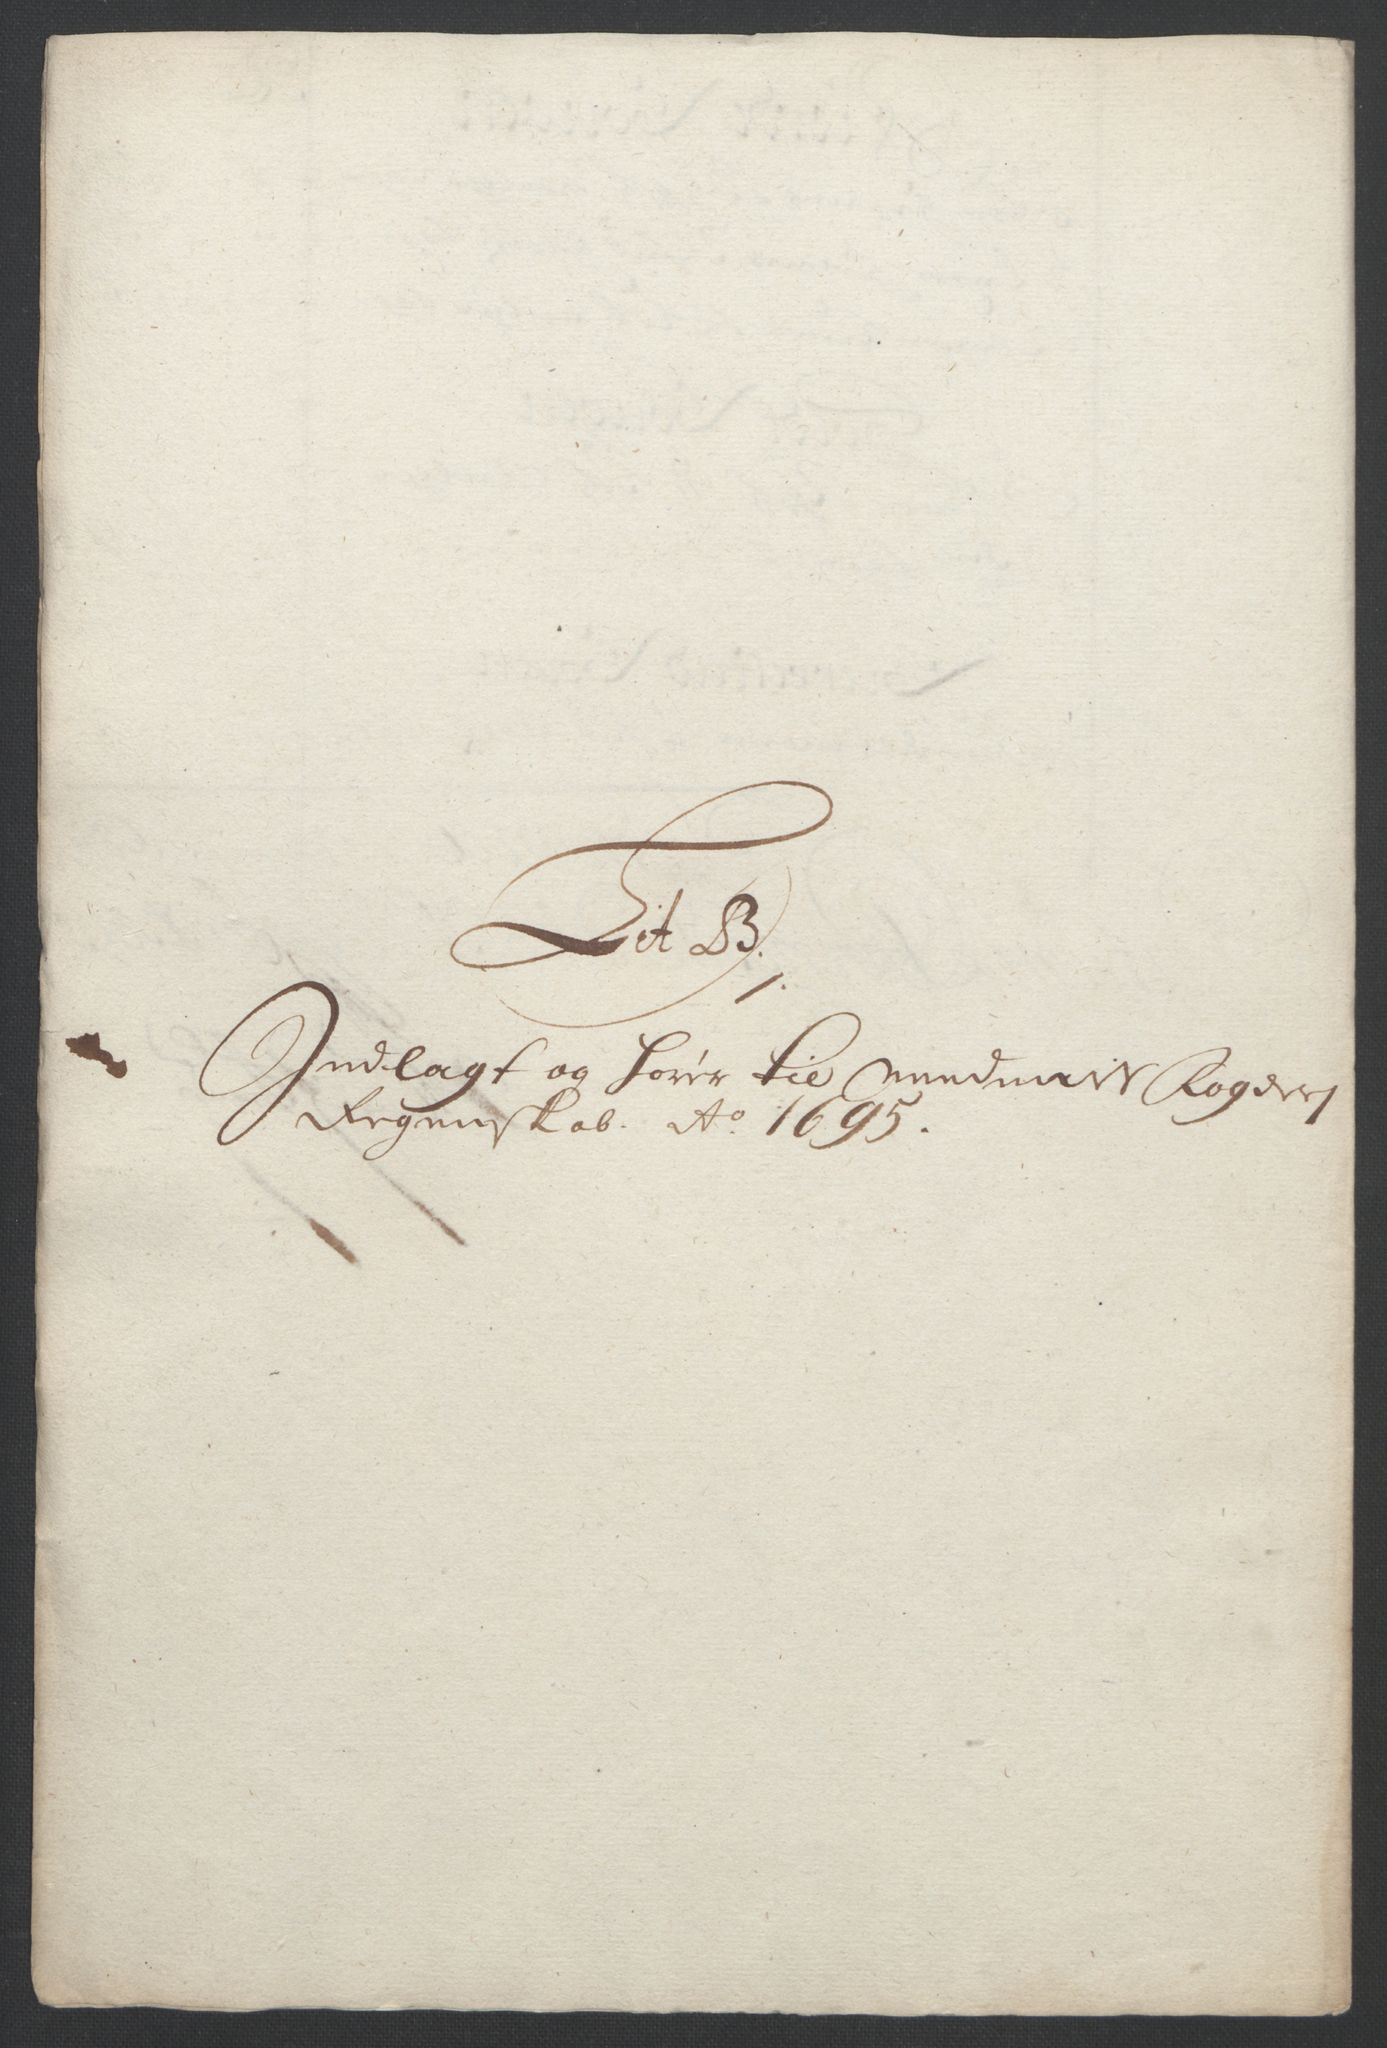 Lit B.
1.
Indlagt og hører til Nummedals Fogderj
Regenskab. Ao. 1695.